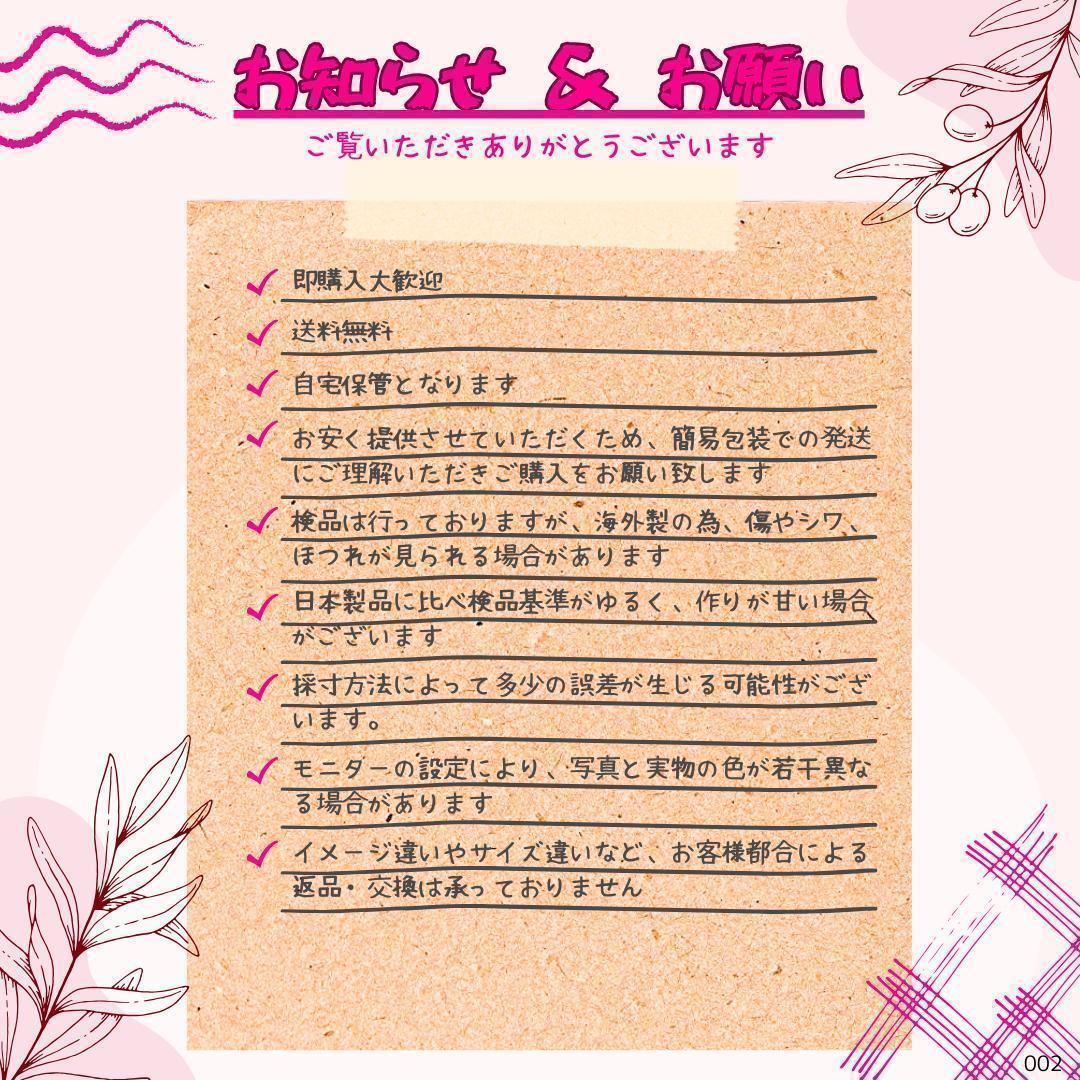 お知らせ & お願い
ご覧いただきありがとうございます
即購入大歓迎
送料無料
自宅保管となります
お安く提供させていただくため、簡易包装での発送
にご理解いただきご購入をお願い致します
検品は行っておりますが、海外製の為、傷やシワ、
ほつれが見られる場合があります
日本製品に比べ検品基準がゆるく、作りが甘い場合
がございます
採寸方法によって多少の誤差が生じる可能性がござ
います。
モニターの設定により、写真と実物の色が若干異な
る場合があります
イメージ違いやサイズ違いなど、お客様都合による
返品・交換は承っておりません
002